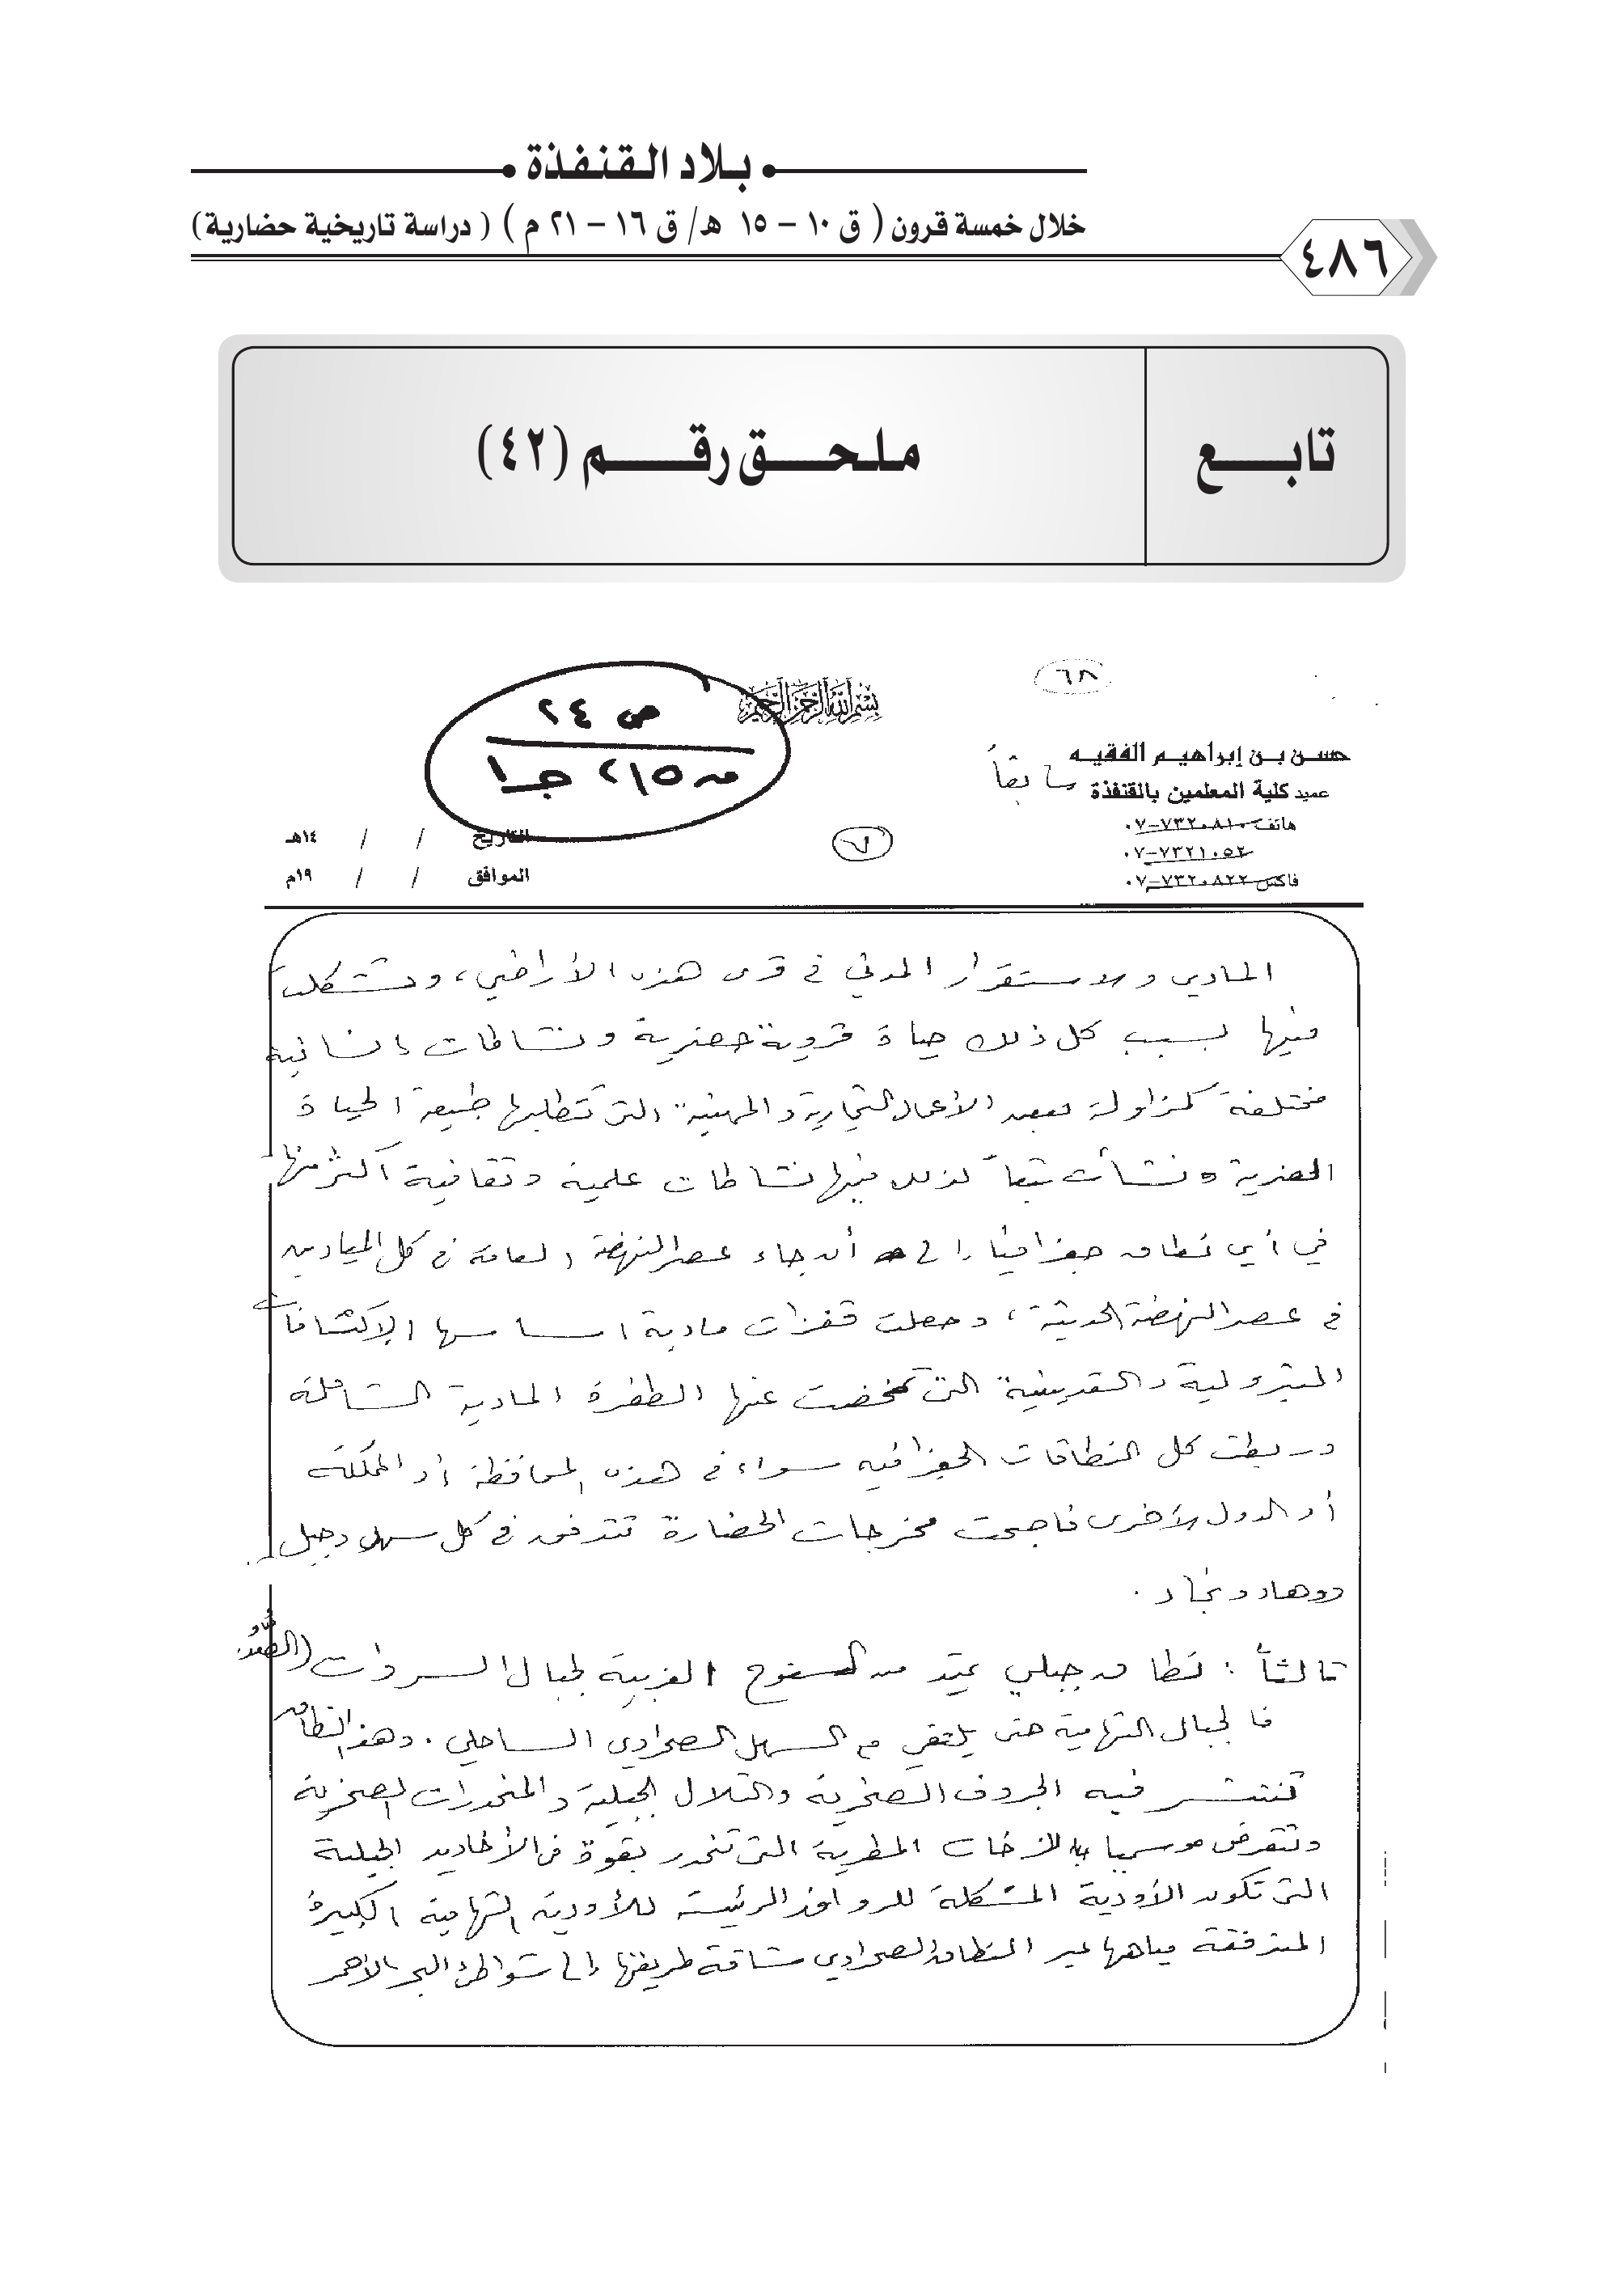 بلاد القنفذة
خلال خمسة قرون ( ق ١٠ – ١٥ هـ/ ق ١٦ – ٢١ م ) ( دراسة تاريخية حضارية)
٤٨٦
تابع
ملحق رقم (٤٢)
٦٨
بسم الله الرحمن الرحيم
ص ٢٤
٢١٥ جـ١
حسن بن إبراهيم الفقيه
عميد كلية المعلمين بالقنفذة سابقاً
هاتف ٧٣٢٠٨١٠-٠٧
٧٣٢١٠٥٢-٠٧
فاكس ٧٣٢٠٨٢٢-٠٧
٧
التاريخ / / ١٤هـ
الموافق / / ١٩م
المادي والاستقرار المدني في قرى هذه الأراضي، وتشكلت
فيها بسبب كل ذلك حياة قروية حضرية ونشاطات إنسانية
مختلفة كمزاولة بعض الأعمال التجارية والمهنية التي تتطلبها طبيعة الحياة
الحضرية ونشأت تبعاً لذلك فيها نشاطات علمية وثقافية أكثر منها
في أي نطاق جغرافي إلى أن جاء عصر النهضة العامة في كل الميادين
في عصر النهضة الحديثة، وحصلت قفزات مادية أساسها الإكتشافات
البترولية والتعدينية التي تمخضت عنها الطفرة المادية الشاملة
وربطت كل النطاقات الجغرافية سواء في هذه المحافظة أو المملكة
أو الدول الأخرى فأصبحت مخرجات الحضارة تتدفق في كل سهل وجبل
ووهاد ونجاد .
ثالثاً : نطاق جبلي يمتد من السفوح الغربية لجبال السروات
فالجبال التهامية حتى يلتقي مع السهل الصحراوي الساحلي . وهذا النطاق
تنتشر فيه الجروف الصخرية والتلال الجبلية والمنحدرات الصخرية
وتتعرض موسمياً للزخات المطرية التي تنحدر بقوة في الأخاديد الجبلية
التي تكون الأودية المشكلة للروافد الرئيسة للأودية التهامية الكبيرة
المتدفقة مياهها عبر النطاق الصحراوي شاقة طريقها إلى شواطئ البحر الأحمر